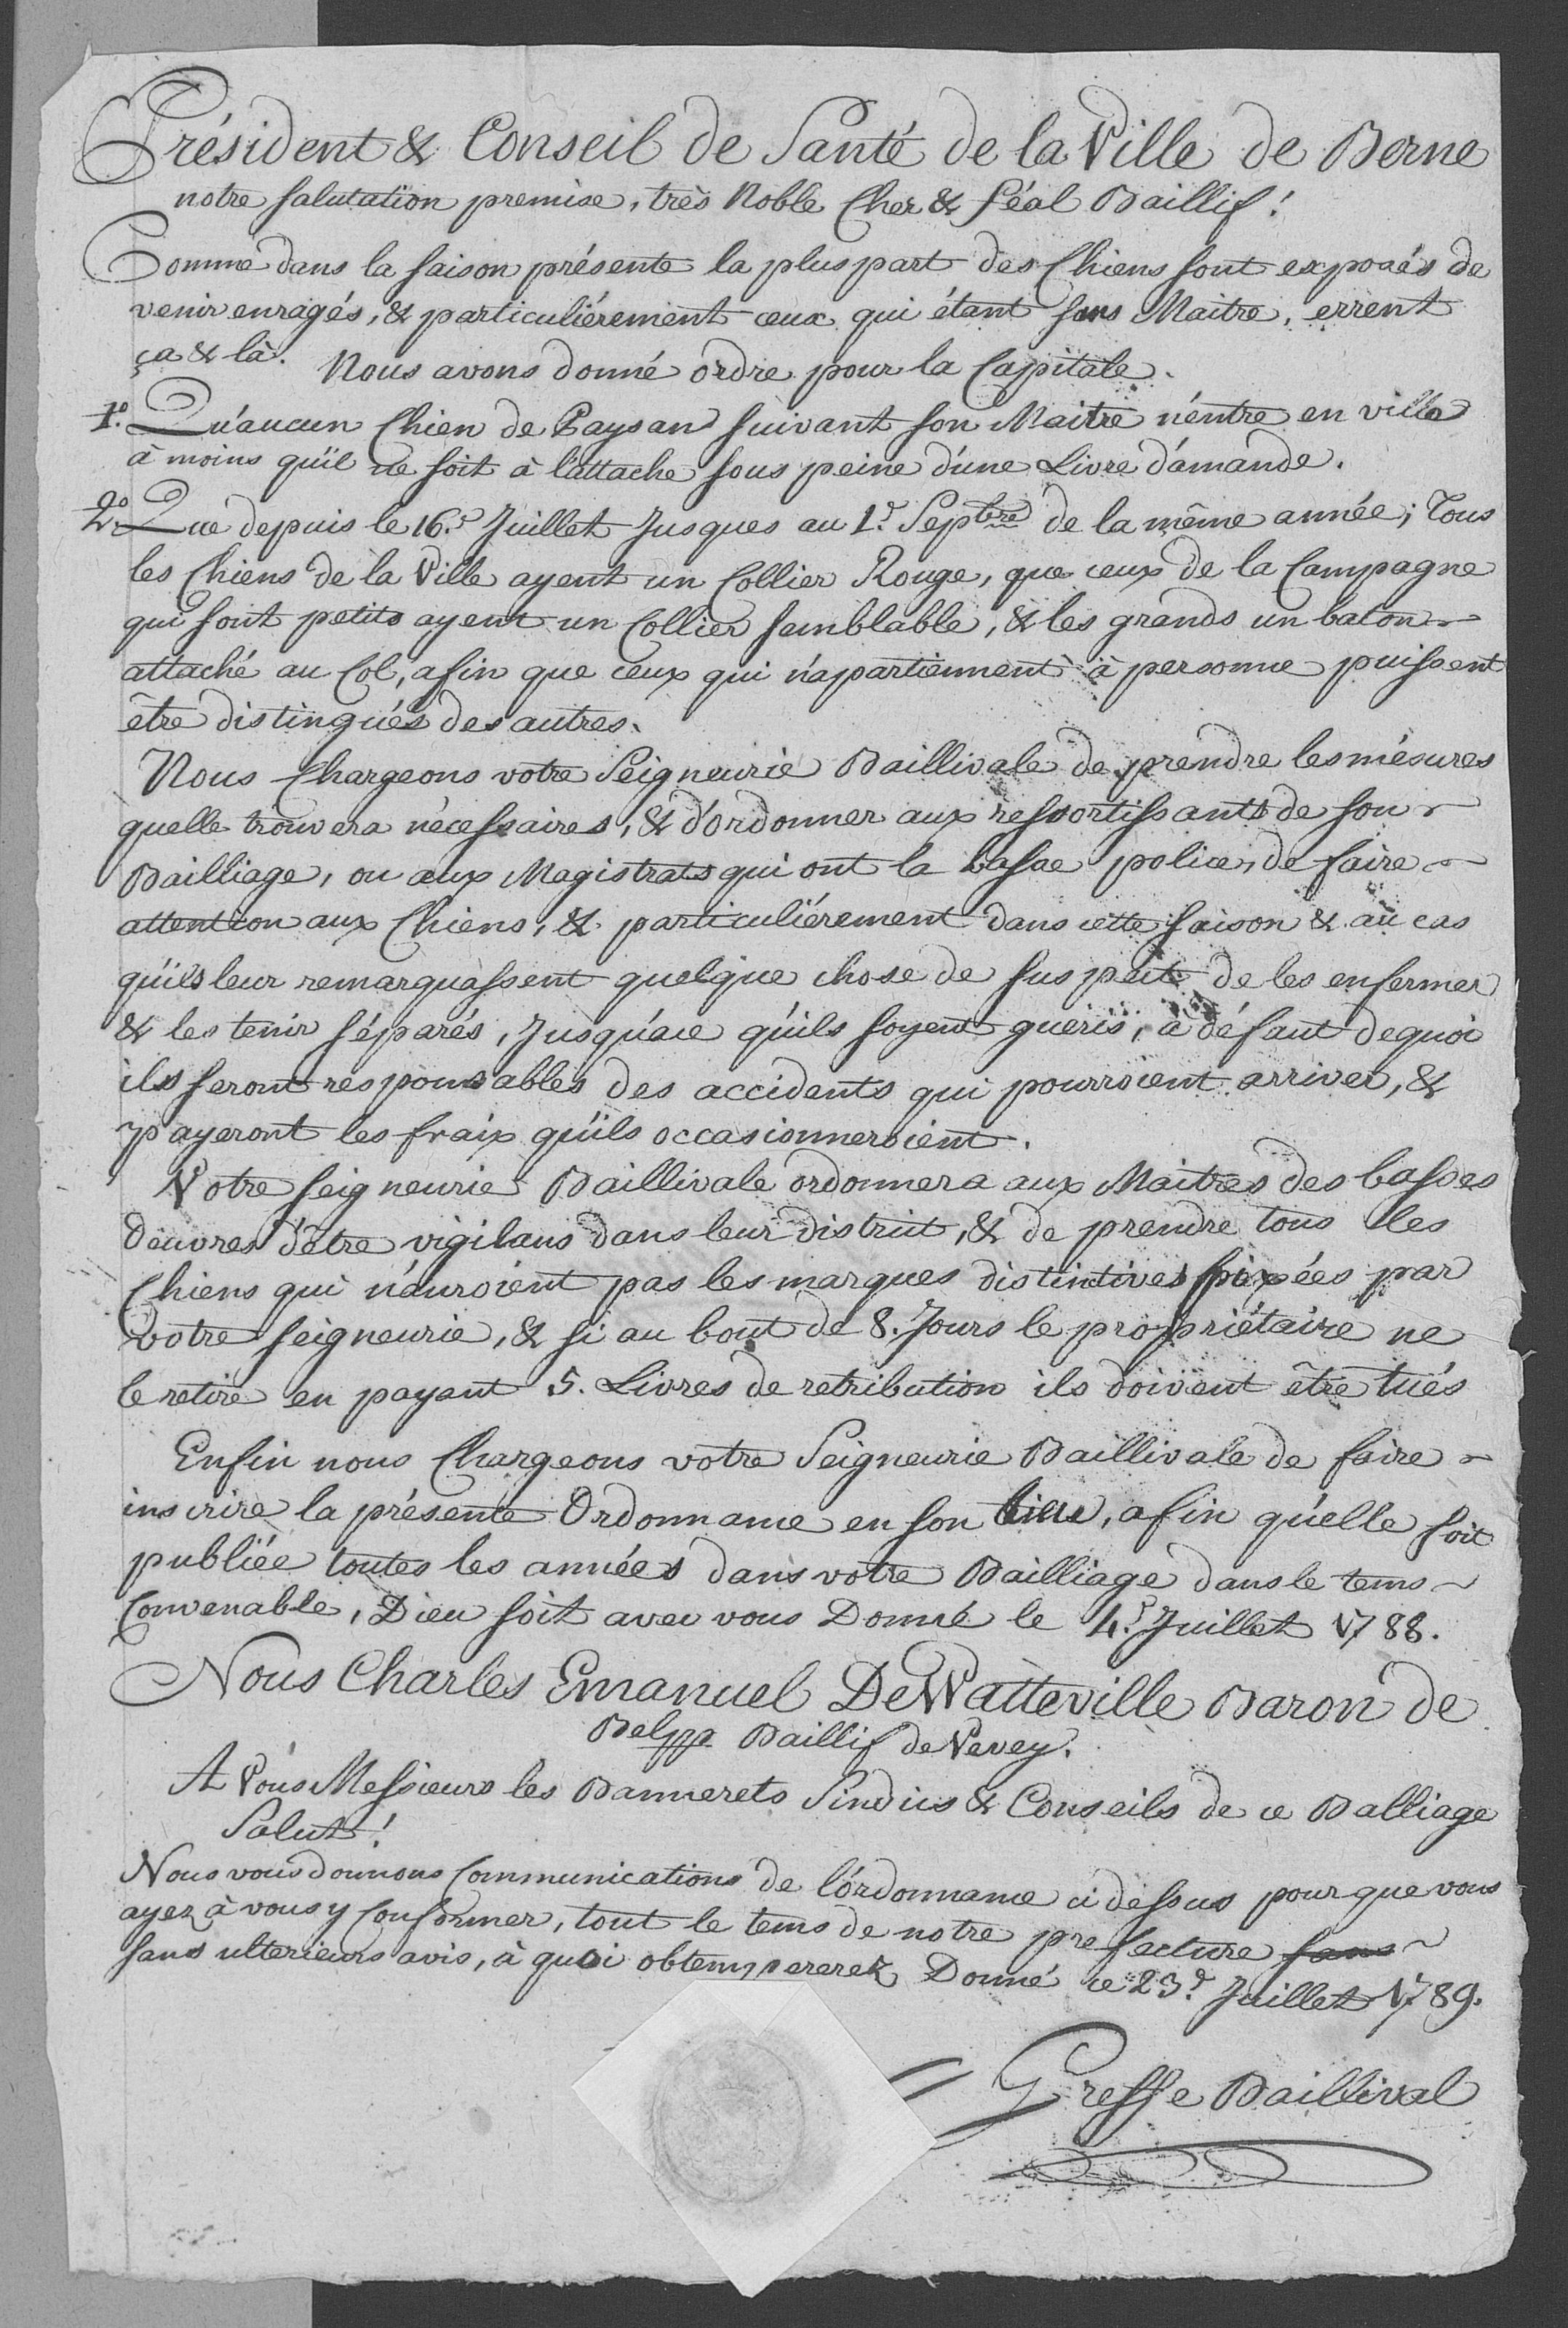 Président & Conseil de Santé de la Ville de Berne
notre salutation premise, très Noble Cher & Féal Baillif!
Comme dans la saison présente la pluspart des Chiens sont exposés de
venir enragés, & particuliérement ceux qui étant sans Maitre, errent
ça & là. Nous avons donné ordre pour la Capitale.
1.° Qu'aucun Chien de Paysan suivant son Maitre n'entre en ville
à moins qu'il ne soit à l'attache sous peine d'une Livre d'amande.
2.° Que depuis le 16.e Juillet Jusques au 1.r Septbre de la même année; Tous
les Chiens de la Ville ayent un Collier Rouge, que ceux de la Campagne
qui sont petits ayent un Collier semblable, & les grands un baton
attaché au Col, afin que ceux qui n'apartiennent à personne puissent
être distingués des autres.
Nous Chargeons votre Seigneurie Baillivale de prendre les mésures
quelle trouvera nécessaires, & d'ordonner aux ressortissants de son
Bailliage, ou aux Magistrats qui ont la basse police, de faire
attention aux Chiens, & particuliérement dans cette saison & au cas
qu'ils leur remarquassent quelque chose de suspect de les enfermer
& les tenir séparés, Jusqu'ace qu'ils soyent gueris, à défaut dequoi
ils seront responsables des accidents qui pourroient arriver, &
payeront les fraix qu'ils occasionneroient.
Votre seigneurie Baillivale ordonnera aux Maitres des basses
Oeuvres d'etre vigilans dans leur district, & de prendre tous les
Chiens qui n'auroient pas les marques distinctives fixées par
votre seigneurie, & si au bout de 8. Jours le propriétaire ne
le retire en payant 5. Livres de retribution ils doivent être tués
Enfin nous Chargeons votre Seigneurie Baillivale de faire
inscrire la présente Ordonnance en son lieu, afin qu'elle soit
publiée toutes les années dans votre Bailliage dans le tems
Convenable, Dieu soit avec vous Donné le 4.e Juillet 1788.
Nous Charles Emanuel De Watteville Baron de
Belpp Baillif de Vevey.
A Vous Messieurs les Bannerets Sindics & Conseils de ce Balliage
Salut!
Nous vous donnons Communications de l'ordonnance ci dessus pour que vous
ayez à vous y Conformer, tout le tems de notre prefecture sans
sans ulterieurs avis, à quoi obtempererez Donné ce 23.e Juillet 1789.
Greffe Baillival